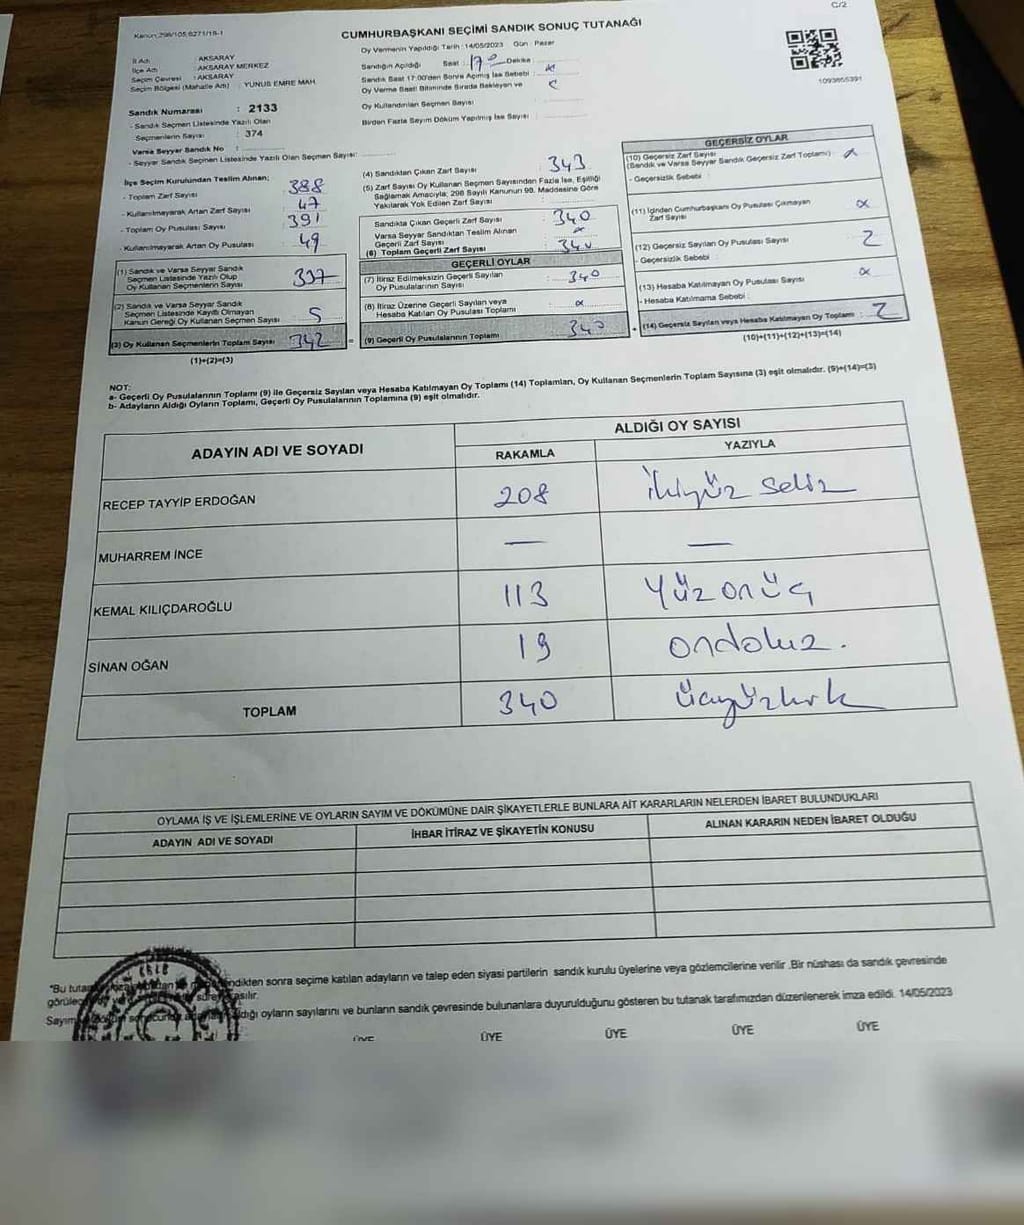 C/2
Kanun:298/105,6271/19-1
CUMHURBAŞKANI SEÇİMİ SANDIK SONUÇ TUTANAĞI
İl Adı : AKSARAY
İlçe Adı : AKSARAY MERKEZ
Seçim Çevresi : AKSARAY
Seçim Bölgesi (Mahalle Adı) : YUNUS EMRE MAH.
Sandık Numarası : 2133
- Sandık Seçmen Listesinde Yazılı Olan
Seçmenlerin Sayısı : 374
Varsa Seyyar Sandık No :
- Seyyar Sandık Seçmen Listesinde Yazılı Olan Seçmen Sayısı:
Oy Vermenin Yapıldığı Tarih :14/05/2023 Gün : Pazar
Sandığın Açıldığı Saat : 17 Dakika :
Sandık Saat 17:00'den Sonra Açılmış İse Sebebi :
Oy Verme Saati Bitiminde Sırada Bekleyen ve
Oy Kullandırılan Seçmen Sayısı :
Birden Fazla Sayım Döküm Yapılmış İse Sayısı :
1093655391
İlçe Seçim Kurulundan Teslim Alınan;
- Toplam Zarf Sayısı : 388
- Kullanılmayarak Artan Zarf Sayısı : 47
- Toplam Oy Pusulası Sayısı : 391
- Kullanılmayarak Artan Oy Pusulası : 49
(1) Sandık ve Varsa Seyyar Sandık
Seçmen Listesinde Yazılı Olup
Oy Kullanan Seçmenlerin Sayısı : 337
(2) Sandık ve Varsa Seyyar Sandık
Seçmen Listesinde Kayıtlı Olmayan
Kanun Gereği Oy Kullanan Seçmen Sayısı : 5
(3) Oy Kullanan Seçmenlerin Toplam Sayısı : 342
(1)+(2)=(3)
(4) Sandıktan Çıkan Zarf Sayısı : 343
(5) Zarf Sayısı Oy Kullanan Seçmen Sayısından Fazla İse, Eşitliği
Sağlamak Amacıyla; 298 Sayılı Kanunun 98. Maddesine Göre
Yakılarak Yok Edilen Zarf Sayısı :
Sandıkta Çıkan Geçerli Zarf Sayısı : 340
Varsa Seyyar Sandıktan Teslim Alınan
Geçerli Zarf Sayısı :
(6) Toplam Geçerli Zarf Sayısı : 340
GEÇERLİ OYLAR
(7) İtiraz Edilmeksizin Geçerli Sayılan
Oy Pusulalarının Sayısı : 340
(8) İtiraz Üzerine Geçerli Sayılan veya
Hesaba Katılan Oy Pusulası Toplamı :
= (9) Geçerli Oy Pusulalarının Toplamı : 340
GEÇERSİZ OYLAR
(10) Geçersiz Zarf Sayısı
(Sandık ve Varsa Seyyar Sandık Geçersiz Zarf Toplamı) :
- Geçersizlik Sebebi :
(11) İçinden Cumhurbaşkanı Oy Pusulası Çıkmayan
Zarf Sayısı :
(12) Geçersiz Sayılan Oy Pusulası Sayısı : 2
- Geçersizlik Sebebi :
(13) Hesaba Katılmayan Oy Pusulası Sayısı :
- Hesaba Katılmama Sebebi :
+ (14) Geçersiz Sayılan veya Hesaba Katılmayan Oy Toplamı : 2
(10)+(11)+(12)+(13)=(14)
NOT:
a- Geçerli Oy Pusulalarının Toplamı (9) ile Geçersiz Sayılan veya Hesaba Katılmayan Oy Toplamı (14) Toplamları, Oy Kullanan Seçmenlerin Toplam Sayısına (3) eşit olmalıdır. (9)+(14)=(3)
b- Adayların Aldığı Oyların Toplamı, Geçerli Oy Pusulalarının Toplamına (9) eşit olmalıdır.
ADAYIN ADI VE SOYADI
ALDIĞI OY SAYISI
RAKAMLA YAZIYLA
RECEP TAYYİP ERDOĞAN 208 ikiyüz sekiz
MUHARREM İNCE — —
KEMAL KILIÇDAROĞLU 113 Yüzonüç
SİNAN OĞAN 19 ondokuz.
TOPLAM 340 üçyüzkırk
OYLAMA İŞ VE İŞLEMLERİNE VE OYLARIN SAYIM VE DÖKÜMÜNE DAİR ŞİKAYETLERLE BUNLARA AİT KARARLARIN NELERDEN İBARET BULUNDUKLARI
ADAYIN ADI VE SOYADI İHBAR İTİRAZ VE ŞİKAYETİN KONUSU ALINAN KARARIN NEDEN İBARET OLDUĞU
"Bu tutanak ndikten sonra seçime katılan adayların ve talep eden siyasi partilerin sandık kurulu üyelerine veya gözlemcilerine verilir .Bir nüshası da sandık çevresinde
görülecek asılır.
Sayım aldığı oyların sayılarını ve bunların sandık çevresinde bulunanlara duyurulduğunu gösteren bu tutanak tarafımızdan düzenlenerek imza edildi. 14/05/2023
ÜYE ÜYE ÜYE ÜYE ÜYE